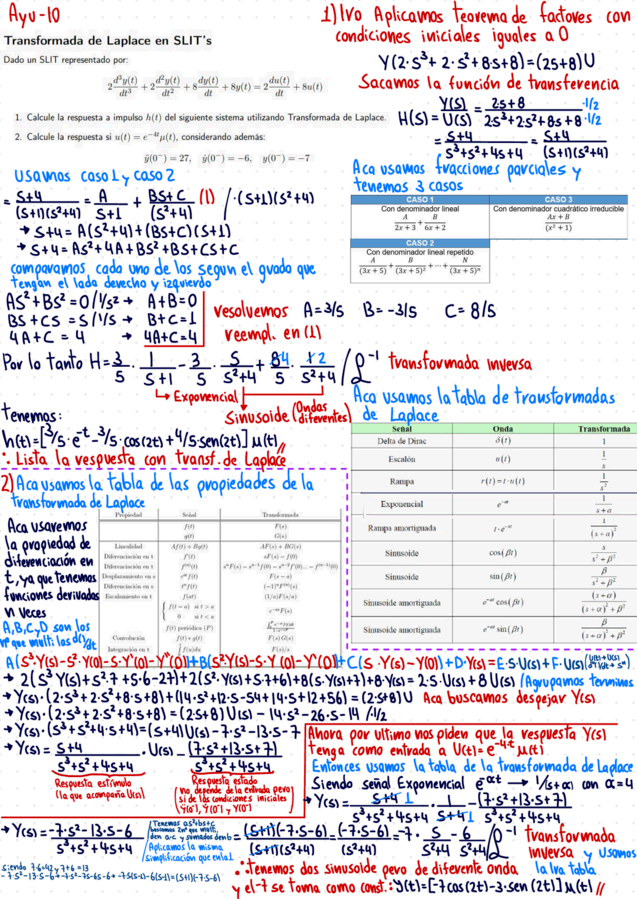 Ayu-10
Transformada de Laplace en SLIT's
Dado un SLIT representado por:
2 d³y(t)/dt³ + 2 d²y(t)/dt² + 8 dy(t)/dt + 8y(t) = 2 du(t)/dt + 8u(t)
1. Calcule la respuesta a impulso h(t) del siguiente sistema utilizando Transformada de Laplace.
2. Calcule la respuesta si u(t) = e^{-4t}μ(t), considerando además:
ÿ(0⁻) = 27, ẏ(0⁻) = −6, y(0⁻) = −7
1) 1ro Aplicamos teorema de factores con
condiciones iniciales iguales a 0
Y(2·S³+2·S²+8·S+8)=(2S+8)U
Sacamos la función de transferencia
H(S)= Y(S)/U(S) = (2S+8)/(2S³+2·S²+8S+8) ·1/2 ·1/2
= (S+4)/(S³+S²+4S+4) = (S+4)/((S+1)(S²+4))
Aca usamos fracciones parciales y
tenemos 3 casos
CASO 1
Con denominador lineal
A/(2x+3) + B/(6x+2)
CASO 3
Con denominador cuadrático irreducible
(Ax+B)/(x²+1)
CASO 2
Con denominador lineal repetido
A/(3x+5) + B/(3x+5)² + ⋯ + N/(3x+5)ⁿ
Usamos caso 1 y caso 2
= (S+4)/((S+1)(S²+4)) = A/(S+1) + (BS+C)/(S²+4) (1) /·(S+1)(S²+4)
→ S+4=A(S²+4)+(BS+C)(S+1)
→ S+4=AS²+4A+BS²+BS+CS+C
comparamos cada uno de los segun el grado que
tengan el lado derecho y izquierdo
AS²+BS²=0/1/S² → A+B=0
BS+CS=S/1/S → B+C=1
4A+C=4 → 4A+C=4
resolvemos A=3/5 B=-3/5 C=8/5
reempl. en (1)
Por lo tanto H=3/5 · 1/(S+1) - 3/5 · S/(S²+4) + 84/5 · 1·2/(S²+4) / ℒ⁻¹ transformada inversa
↳ Exponencial
Sinusoide (Ondas diferentes)
tenemos:
h(t)=[3/5·e^{-t}-3/5·cos(2t)+4/5·sen(2t)]μ(t)//
∴ Lista la respuesta con transf. de Laplace
Aca usamos la tabla de transformadas
de Laplace
Señal Onda Transformada
Delta de Dirac δ(t) 1
Escalón u(t) 1/s
Rampa r(t)=t·u(t) 1/s²
Exponencial e^{-αt} 1/(s+α)
Rampa amortiguada t·e^{-αt} 1/(s+α)²
Sinusoide cos(βt) s/(s²+β²)
Sinusoide sin(βt) β/(s²+β²)
Sinusoide amortiguada e^{-αt} cos(βt) (s+α)/((s+α)²+β²)
Sinusoide amortiguada e^{-αt} sin(βt) β/((s+α)²+β²)
2) Aca usamos la tabla de las propiedades de la
transformada de Laplace
Aca usaremos
la propiedad de
diferenciación en
t, ya que tenemos
funciones derivadas
n veces
A,B,C,D son los
nº que multi. las d()/dt
Propiedad Señal Transformada
f(t) F(s)
g(t) G(s)
Linealidad Af(t) + Bg(t) AF(s) + BG(s)
Diferenciación en t f'(t) sF(s) − f(0)
Diferenciación en t f⁽ⁿ⁾(t) sⁿF(s) − sⁿ⁻¹f(0) − sⁿ⁻²f'(0)... − f⁽ⁿ⁻¹⁾(0)
Desplazamiento en s e^{at}f(t) F(s − a)
Diferenciación en s tⁿf(t) (−1)ⁿF⁽ⁿ⁾(s)
Escalamiento en t f(at) (1/a)F(s/a)
{ f(t − a) si t > a
0 si t < a e^{-as}F(s)
f(t) periódica (P)
Convolución f(t) ∗ g(t) F(s)G(s)
Integración en t F(s)/s
A(S³·Y(S)-S²·Y(0)-S·Y'(0)-Y''(0))+B(S²Y(S)-S·Y(0)-Y'(0))+C(S·Y(S)-Y(0))+D·Y(S)=E·S·U(S)+F·U(S)
→ 2(S³Y(S)+S²·7+S·6-27)+2(S²·Y(S)+S·7+6)+8(S·Y(S)+7)+8·Y(S)=2·S·U(S)+8U(S) /Agrupamos terminos
→ Y(S)·(2·S³+2·S²+8·S+8)+(14·S²+12·S-54+14·S+12+56)=(2·S+8)U Aca buscamos despejar Y(S)
→ Y(S)·(2·S³+2·S²+8·S+8)=(2S+8)U(S)-14·S²-26·S-14 /·1/2
→ Y(S)·(S³+S²+4·S+4)=(S+4)U(S)-7·S²-13·S-7
→ Y(S)= (S+4)/(S³+S²+4S+4) · U(S) - (7·S²+13·S+7)/(S³+S²+4S+4)
Respuesta estímulo
(la que acompaña U(S))
Respuesta estado
(no depende de la entrada pero
si de las condiciones iniciales
Ÿ(0⁻), Ẏ(0⁻) y Y(0⁻))
Ahora por ultimo nos piden que la respuesta Y(S)
tenga como entrada a U(t)=e^{-4·t}μ(t)
Entonces usamos la tabla de la transformada de Laplace
Siendo señal Exponencial e^{-αt} → 1/(S+α) con α=4
→ Y(S)= (S+4)1/(S³+S²+4S+4) · 1/(S+4)1 - (7·S²+13·S+7)/(S³+S²+4S+4)
→ Y(S)= (-7·S²-13·S-6)/(S³+S²+4S+4)
Aplicamos la misma
simplificación que en la 1
= ((S+1)(-7·S-6))/((S+1)(S²+4)) = (-7·S-6)/(S²+4) = -7·S/(S²+4) - 6/(S²+4) /ℒ⁻¹ transformada
inversa y usamos
la 1ra tabla
siendo 7·6=42 y 7+6=13
-7·S²-13·S-6 → -7·S²-7S-6S-6 → -7S(S+1)-6(S+1)=(S+1)(-7·S-6)
∴ Tenemos dos sinusoide pero de diferente onda
y el -7 se toma como const.: Y(t)=[-7cos(2t)-3·sen(2t)]μ(t)//